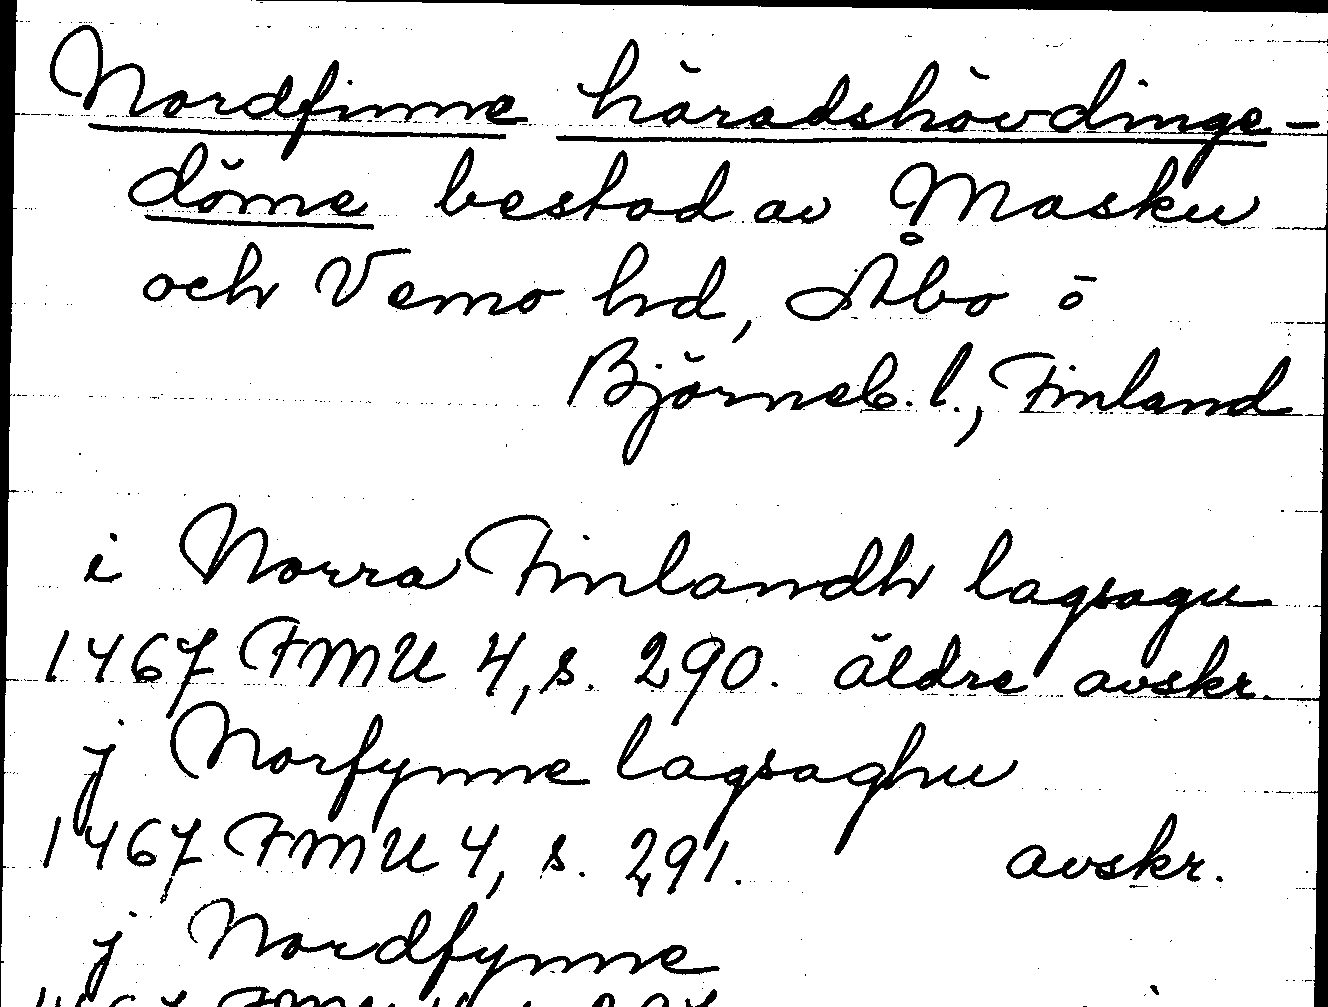 Nordfinne häradshövdinge-
döme bestod av Masku
och Vemo hd, Åbo o
Björneb. l., Finland
i Norra Finlandh lagsagu
1467 FMU 4, s. 290. äldre avskr.
j Norfynne lagsaghu
1467 FMU 4, s. 291. avskr.
j Nordfynne
1467 FMU 4, s.